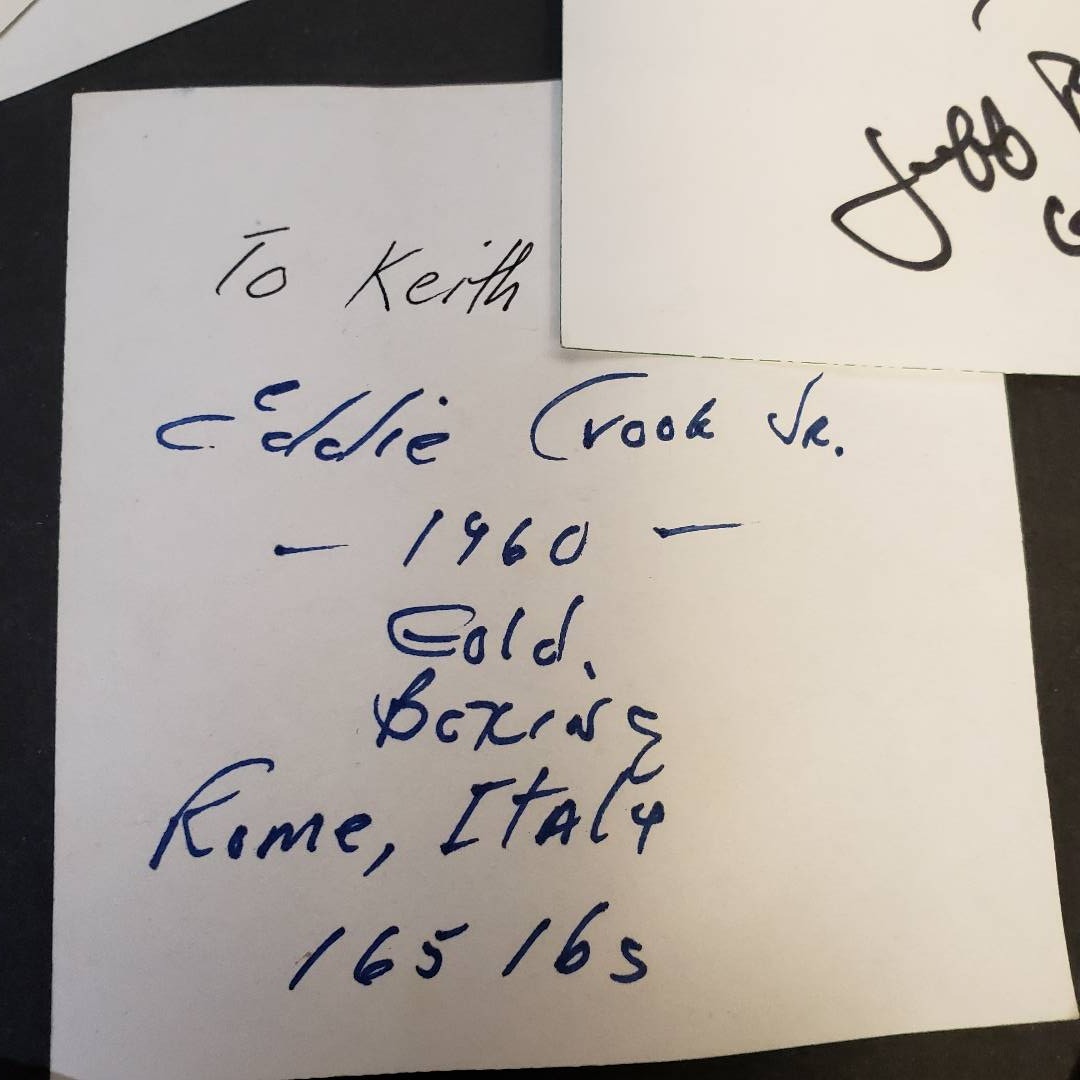 To Keith
Eddie Crook Jr.
- 1960 -
Gold.
Boxing
Rome, Italy
165 lbs
Jeff